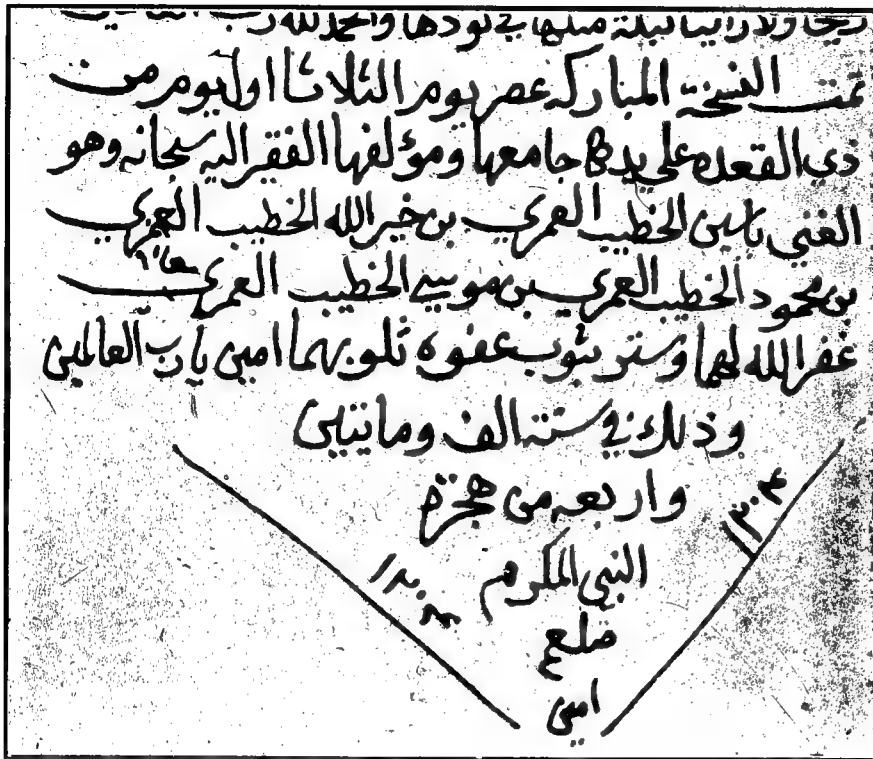 ريحا ولا راينا ليلة مثلها في نودها والحمد لله رب
تمت النسخة المباركه عصر يوم الثلاثا اول يوم من
ذي القعده على يد جامعها ومؤلفها الفقير اليه سبحانه وهو
الغني ياسين الخطيب العمري بن خير الله الخطيب العمري
بن محمود الخطيب العمري بن موسى الخطيب العمري
غفر الله لهما وستر بثوب عفوه ثلوبهما امين يا رب العالمين
وذلك في سنة الف وماتيين
واربعه من هجرة
النبي المكرم
صلعم
امين
١٢٠٤
١٢٠٤